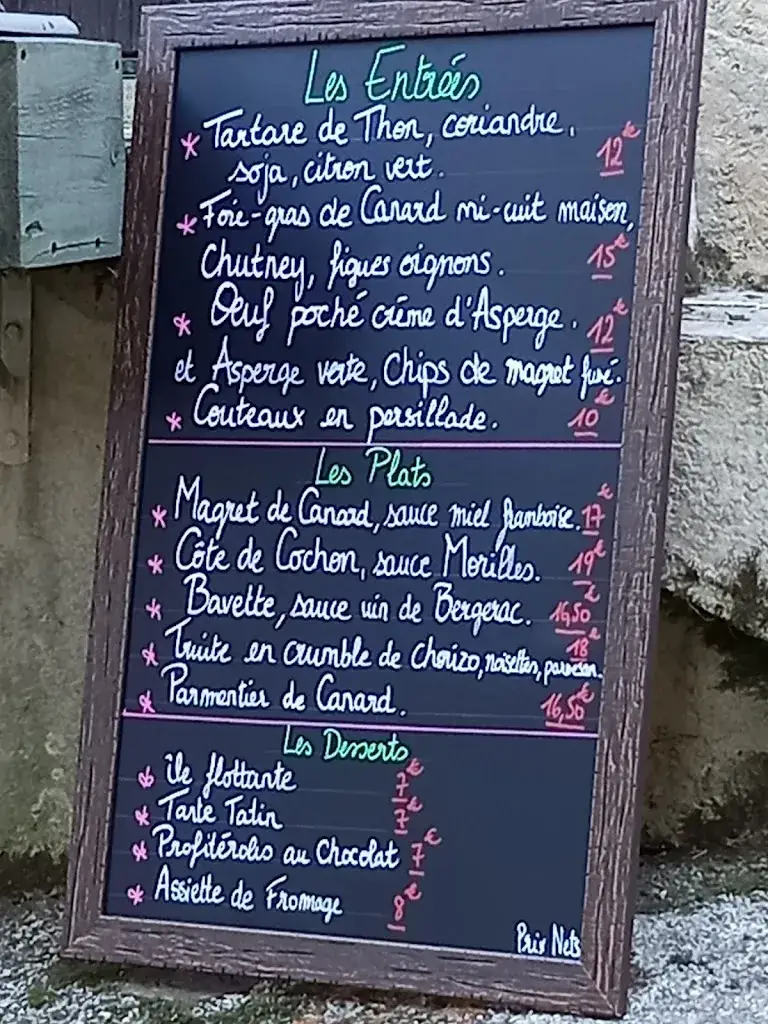 Les Entrées
* Tartare de Thon, coriandre, 12€
soja, citron vert.
* Foie-gras de Canard mi-cuit maison,
Chutney, figues oignons. 15€
* Oeuf poché crème d'Asperge. 12€
et Asperge verte, Chips de magret fumé.
* Couteaux en persillade. 10€
Les Plats
* Magret de Canard, sauce miel framboise. 17€
* Côte de Cochon, sauce Morilles. 19€
* Bavette, sauce vin de Bergerac. 16,50€
* Truite en crumble de Chorizo, noisettes, parmesan. 18€
* Parmentier de Canard. 16,50€
Les Desserts
* île flottante 7€
* Tarte Tatin 7€
* Profitéroles au Chocolat 7€
* Assiette de Fromage 8€
Prix Nets